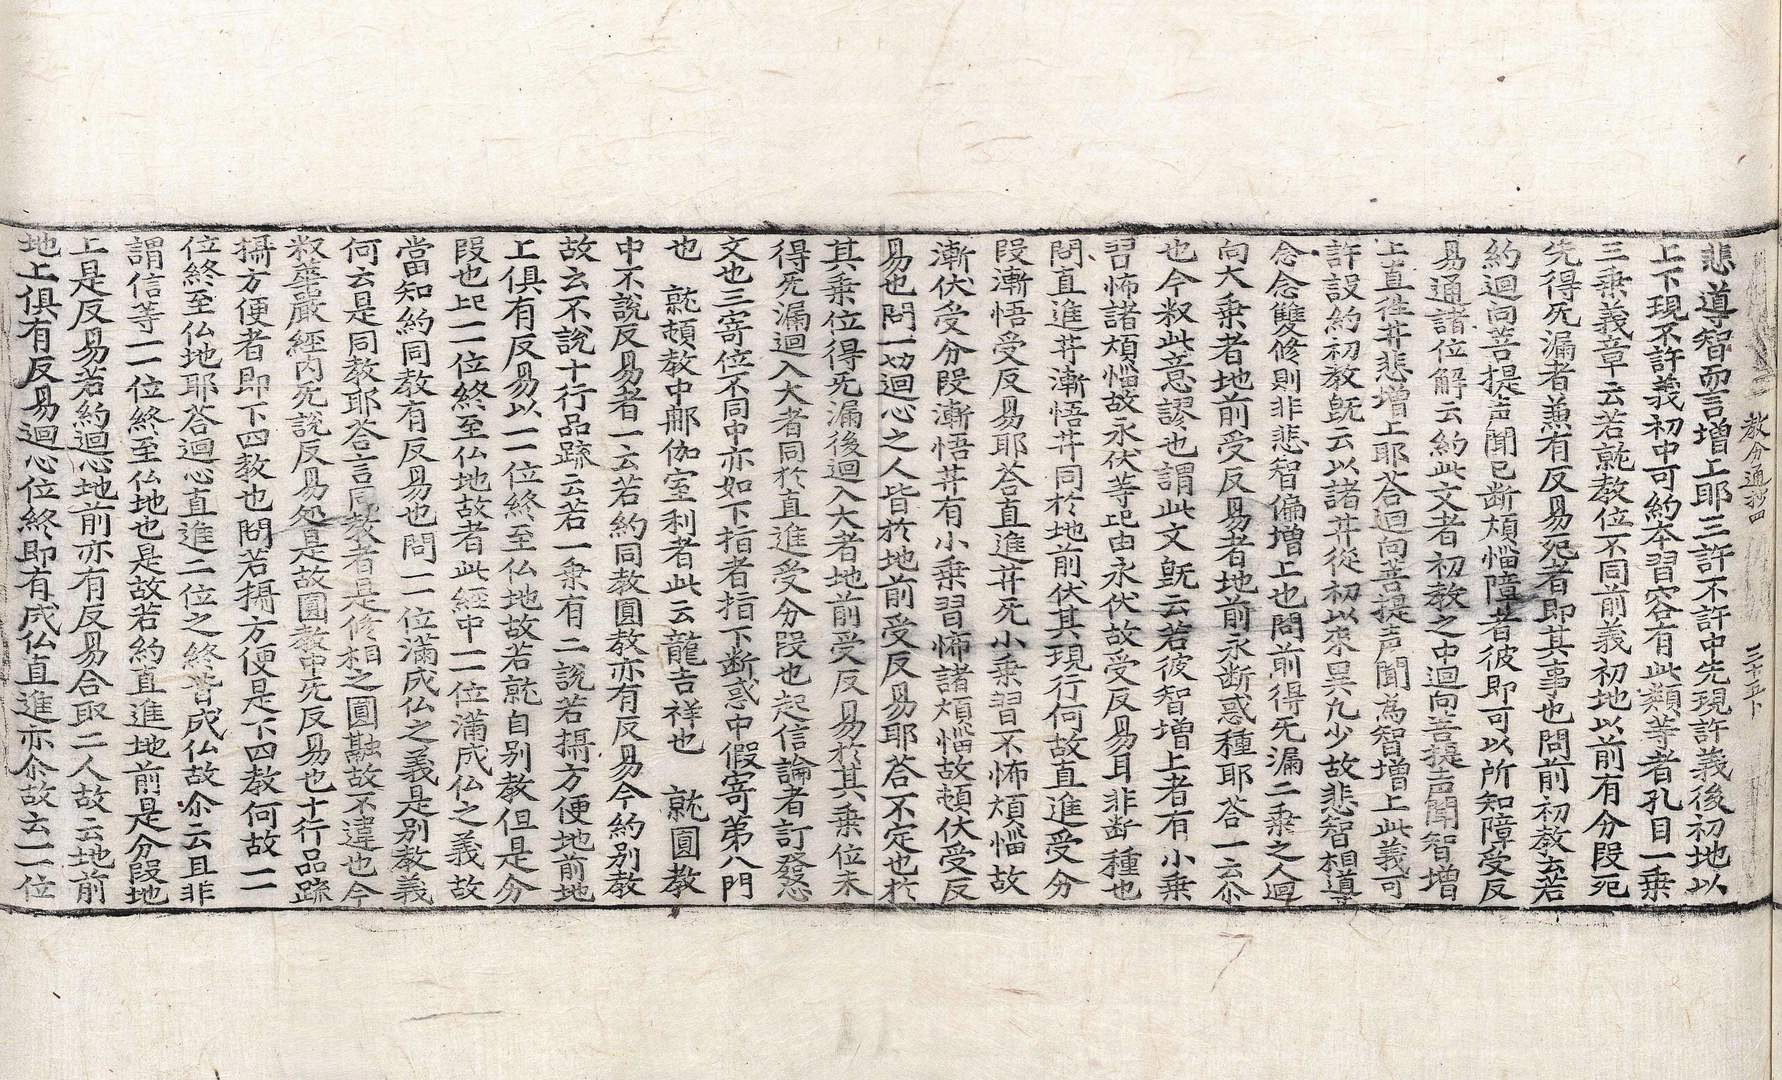 教分通抄四 三十五卜
悲導智而言增上耶三許不許中先現許義後初地以
上下現不許義初中可約本習穴谷有此類等者孔目一乗
三乗義章云若就教位不同前義初地以前有分段死
先得旡漏者兼有反易死者即其事也問前初教云若
約迴向菩提声聞已断煩惱障者彼即可以所知障受反
易通諸位解云約此文者初教之中迴向菩提声聞智增
上直徃䒑悲增上耶答迴向菩提声聞為智增上此義可
許設約初教旣云以諸䒑從初以來異凢少故悲智相導
念念雙修則非悲智偏增上也問前得旡漏二乗之人迴
向大乗者地前受反易者地前永断惑種耶答一云尒
也今叙此意謬也謂此文旣云若彼智增上者有小乗
習怖諸煩惱故永伏等此由永伏故受反易耳非断種也
問直進䒑漸悟䒑同於地前伏其現行何故直進受分
段漸悟受反易耶荅直進䒑旡小乗習不怖煩惱故
漸伏受分段漸悟䒑有小乗習怖諸煩惱故頓伏受反
易也問一切迴心之人皆於地前受反易耶荅不定也於
其乗位得旡漏後迴入大者地前受反易於其乗位未
得旡漏迴入大者同於直進受分段也起信論者訂發心
文也三寄位不同中亦如下指者指下断惑中假寄第八門
也　就頓教中䣍伽室利者此云龍吉祥也　就圓教
中不說反易者一云若約同教圓教亦有反易今約別教
故云不說十行品䟽云若一乗有二說若攝方便地前地
上俱有反易以一一位終至仏地故若就自別教但是分
段也此一一位終至仏地故者此經中一一位滿成仏之義故
當知約同教有反易也問一一位滿成仏之義是別教義
何云是同教耶荅言同教者是修相之圓融故不違也今
叙華嚴經內旡說反易処是故圓教中旡反易也十行品䟽
攝方便者即下四教也問若攝方便是下四教何故一一
位終至仏地耶荅迴心直進二位之終皆成仏故尒云且非
謂信等一一位終至仏地也是故若約直進地前是分段地
上是反易若約迴心地前亦有反易合取二人故云地前
地上俱有反易迴心位終即有成仏直進亦尒故云一位